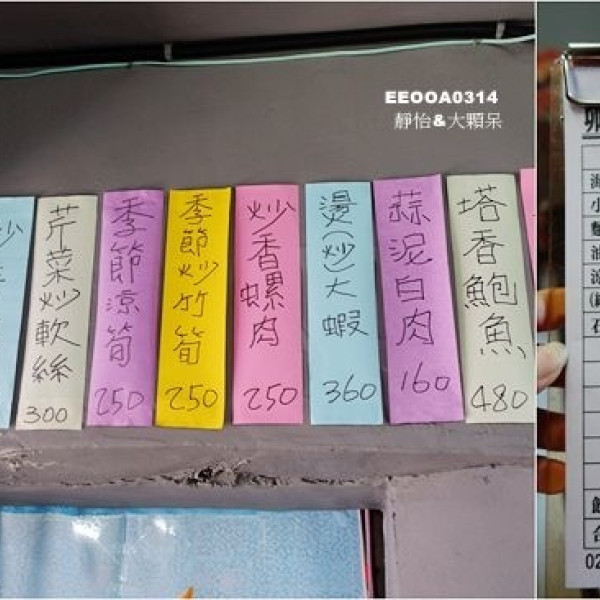 EEOOA0314
靜怡&大顆呆
炒
芹菜炒軟絲
300
季節涼筍
250
季節炒竹筍
250
炒香螺肉
250
燙(炒)大蝦
360
蒜泥白肉
160
塔香鮑魚
480
海
小
麵
油
涼
石
合
02